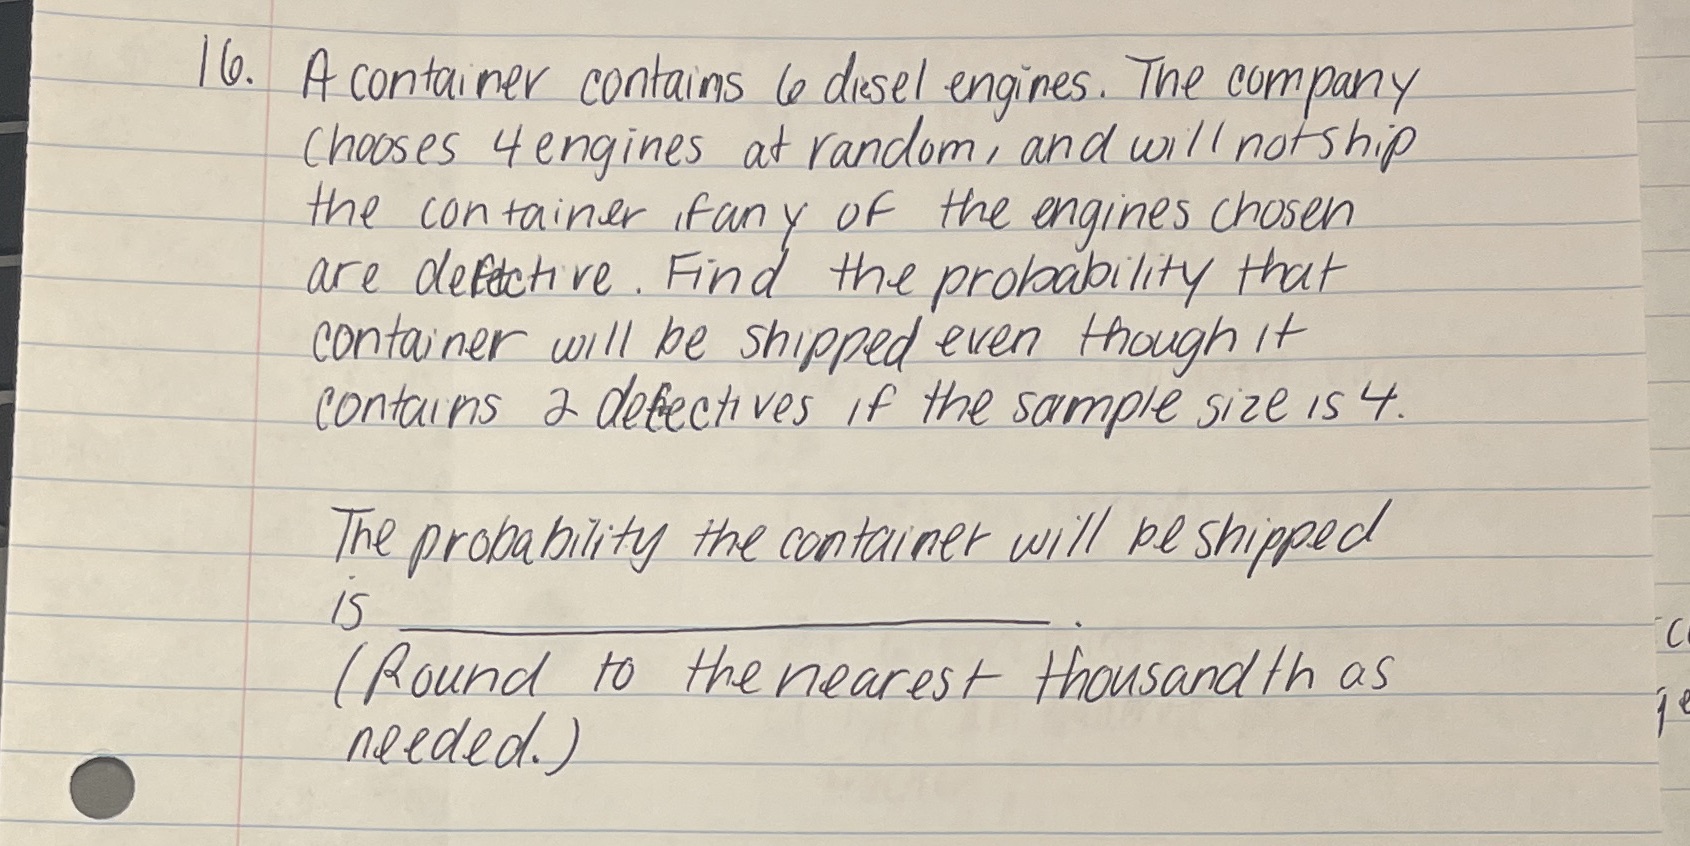 16. A container contains 6 diesel engines. The company
chooses 4 engines at random, and will not ship
the container if any of the engines chosen
are defective. Find the probability that
container will be shipped even though it
contains 2 defectives if the sample size is 4.
The probability the container will be shipped
is ____________.
(Round to the nearest thousandth as
needed.)